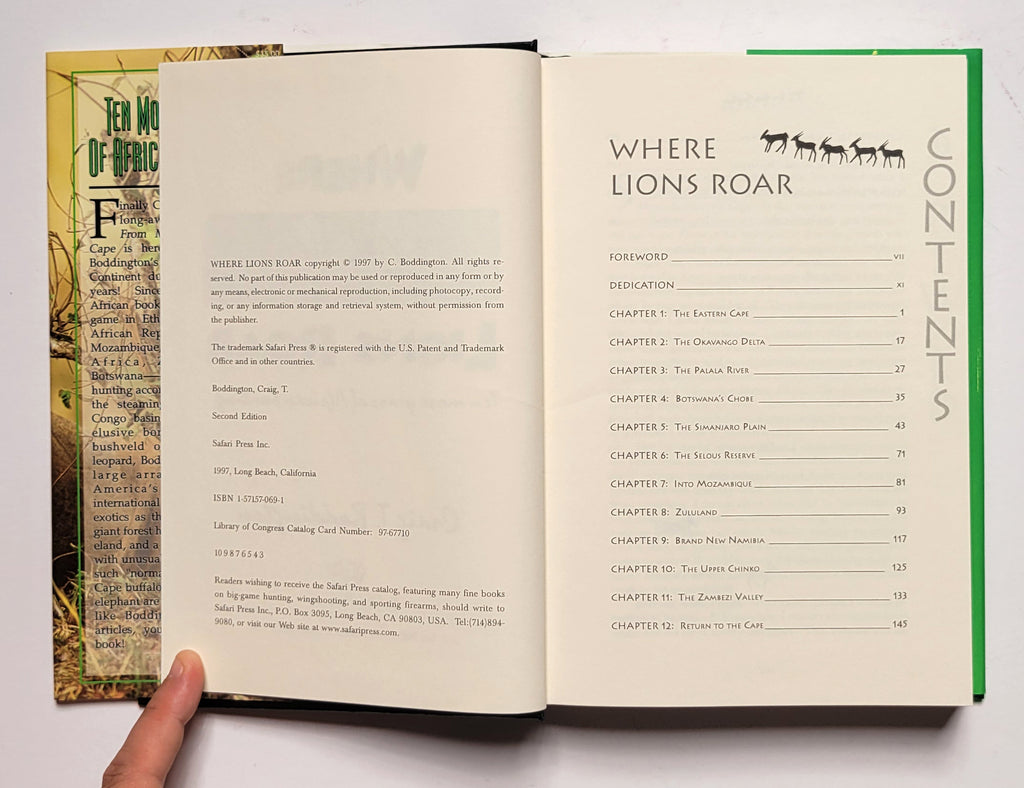 TEN MO
OF AFRIC
Finally C
long-aw
From M
Cape is her
Boddington's
Continent du
years! Since
African book
game in Eth
African Rep
Mozambique
Africa,
Botswana—
hunting acco
the steamin
Congo basin
elusive bon
bushveld o
leopard, Bod
large arra
America's
international
exotics as th
giant forest h
eland, and a
with unusua
such "norma
Cape buffalo
elephant are
like Boddin
articles, you
book!
WHERE LIONS ROAR copyright © 1997 by C. Boddington. All rights re-
served. No part of this publication may be used or reproduced in any form or by
any means, electronic or mechanical reproduction, including photocopy, record-
ing, or any information storage and retrieval system, without permission from
the publisher.
The trademark Safari Press ® is registered with the U.S. Patent and Trademark
Office and in other countries.
Boddington, Craig, T.
Second Edition
Safari Press Inc.
1997, Long Beach, California
ISBN 1-57157-069-1
Library of Congress Catalog Card Number: 97-67710
10 9 8 7 6 5 4 3
Readers wishing to receive the Safari Press catalog, featuring many fine books
on big-game hunting, wingshooting, and sporting firearms, should write to
Safari Press Inc., P.O. Box 3095, Long Beach, CA 90803, USA. Tel:(714)894-
9080, or visit our Web site at www.safaripress.com.
WHERE
LIONS ROAR
CONTENTS
FOREWORD VII
DEDICATION XI
CHAPTER 1: THE EASTERN CAPE 1
CHAPTER 2: THE OKAVANGO DELTA 17
CHAPTER 3: THE PALALA RIVER 27
CHAPTER 4: BOTSWANA'S CHOBE 35
CHAPTER 5: THE SIMANJARO PLAIN 43
CHAPTER 6: THE SELOUS RESERVE 71
CHAPTER 7: INTO MOZAMBIQUE 81
CHAPTER 8: ZULULAND 93
CHAPTER 9: BRAND NEW NAMIBIA 117
CHAPTER 10: THE UPPER CHINKO 125
CHAPTER 11: THE ZAMBEZI VALLEY 133
CHAPTER 12: RETURN TO THE CAPE 145